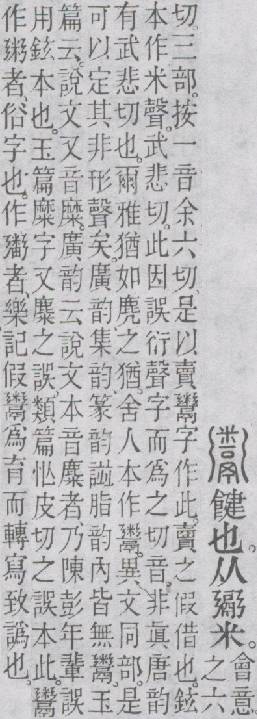 䭈也。从䰜米。會意。之六
切。三部。按一音余六切。是以賣鬻字作此。賣之假借也。鉉
本作米聲。武悲切。此因誤衍聲字而爲之切音。非眞唐韵
有武悲切也。爾雅猶如麂之猶。舍人本作鬻。異文同部。是
可以定其非形聲矣。廣韵集韵篆韵諩脂韵內皆無鬻。玉
篇云。說文又音糜。廣韵云。說文本音麋者。乃陳彭年輩誤
用鉉本也。玉篇糜字又麋之誤。類篇忙皮切之誤本此。鬻
作粥者俗字也。作者。樂記假鬻爲育而轉寫致譌也。